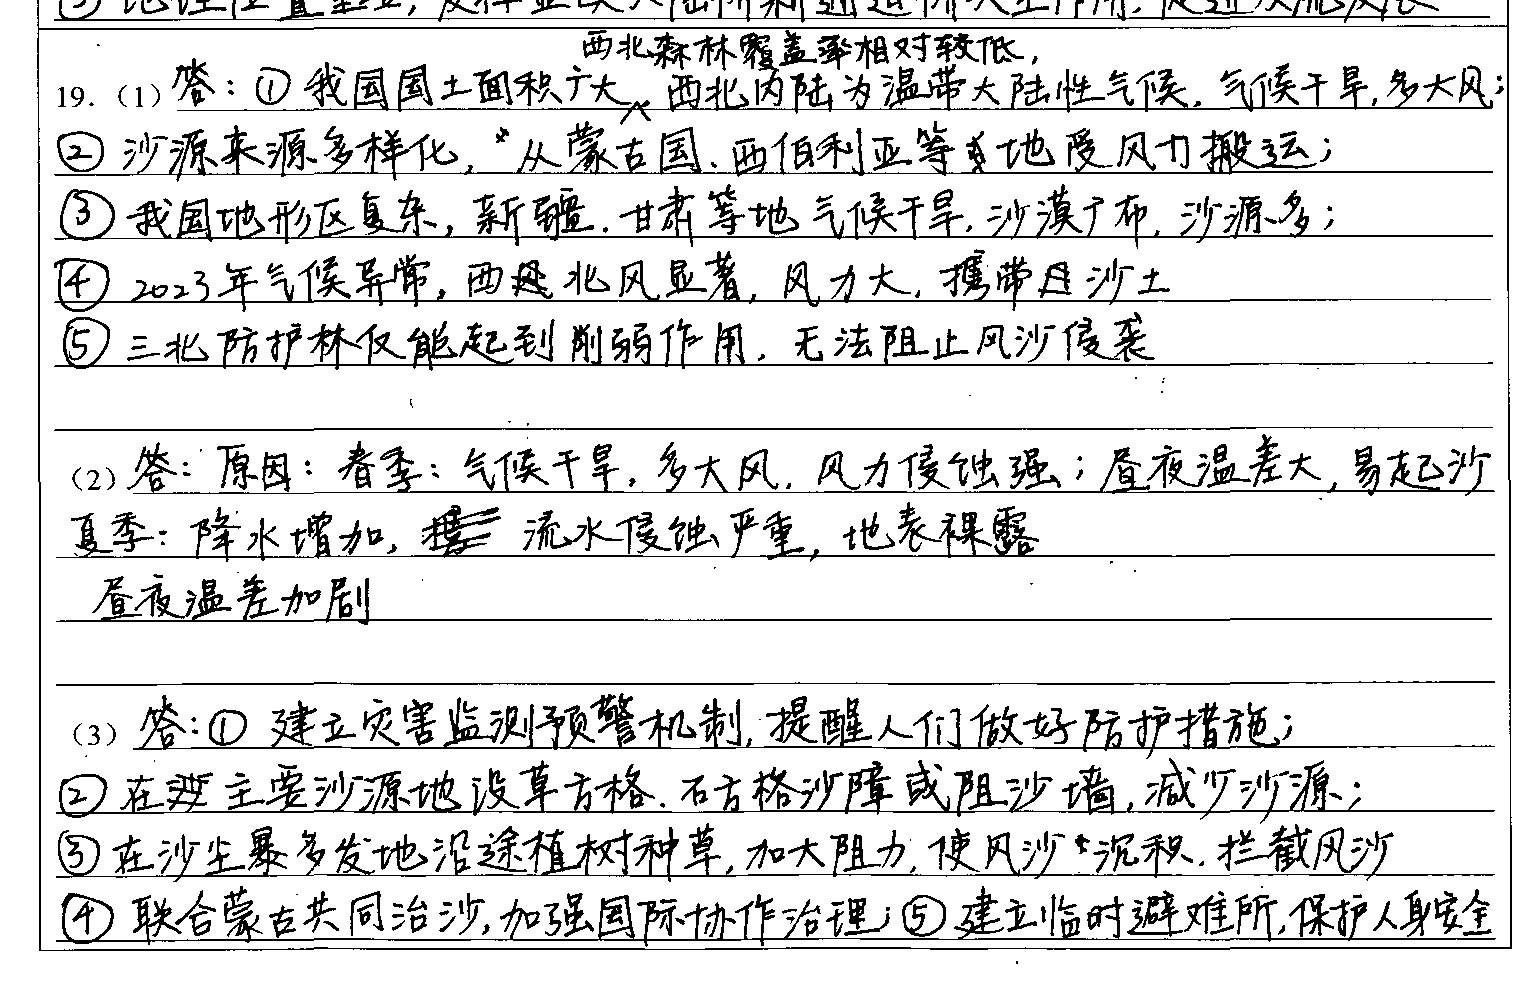 西北森林覆盖率相对较低，
19.（1）答：① 我国国土面积广大，西北内陆为温带大陆性气候，气候干旱，多大风；
② 沙源来源多样化，从蒙古国、西伯利亚等地受风力搬运；
③ 我国地形区复杂，新疆、甘肃等地气候干旱，沙漠广布，沙源多；
④ 2023年气候异常，西北风显著，风力大，携带沙土
⑤ 三北防护林仅能起到削弱作用，无法阻止风沙侵袭
（2）答：原因：春季：气候干旱，多大风，风力侵蚀强；昼夜温差大，易起沙
夏季：降水增加，流水侵蚀严重，地表裸露
昼夜温差加剧
（3）答：① 建立灾害监测预警机制，提醒人们做好防护措施；
② 在主要沙源地设草方格、石方格沙障或阻沙墙，减少沙源；
③ 在沙尘暴多发地沿途植树种草，加大阻力，使风沙沉积，拦截风沙
④ 联合蒙古共同治沙，加强国际协作治理；⑤ 建立临时避难所，保护人身安全